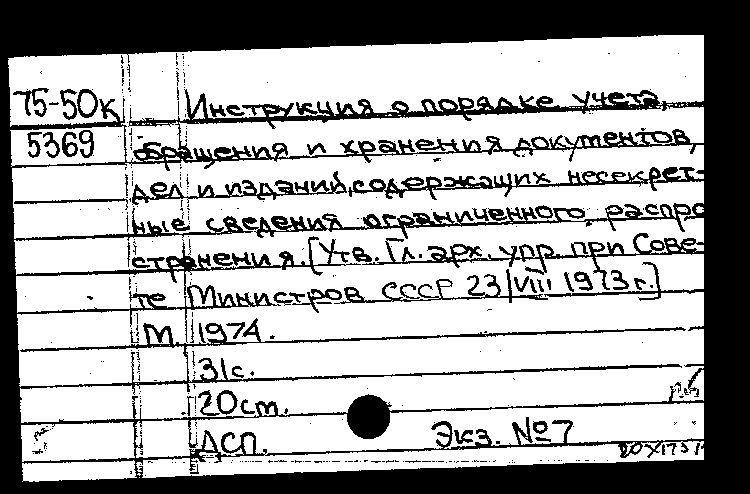 75-50к Инструкция о порядке учета,
5369 обращения и хранения документов,
дел и изданий, содержащих несекрет-
ные сведения ограниченного распро
странения. [Утв. Гл. арх. упр. при Сове-
те Министров СССР 23/VIII 1973 г.]
М. 1974.
31с.
20см.
ДСП. Экз. №7